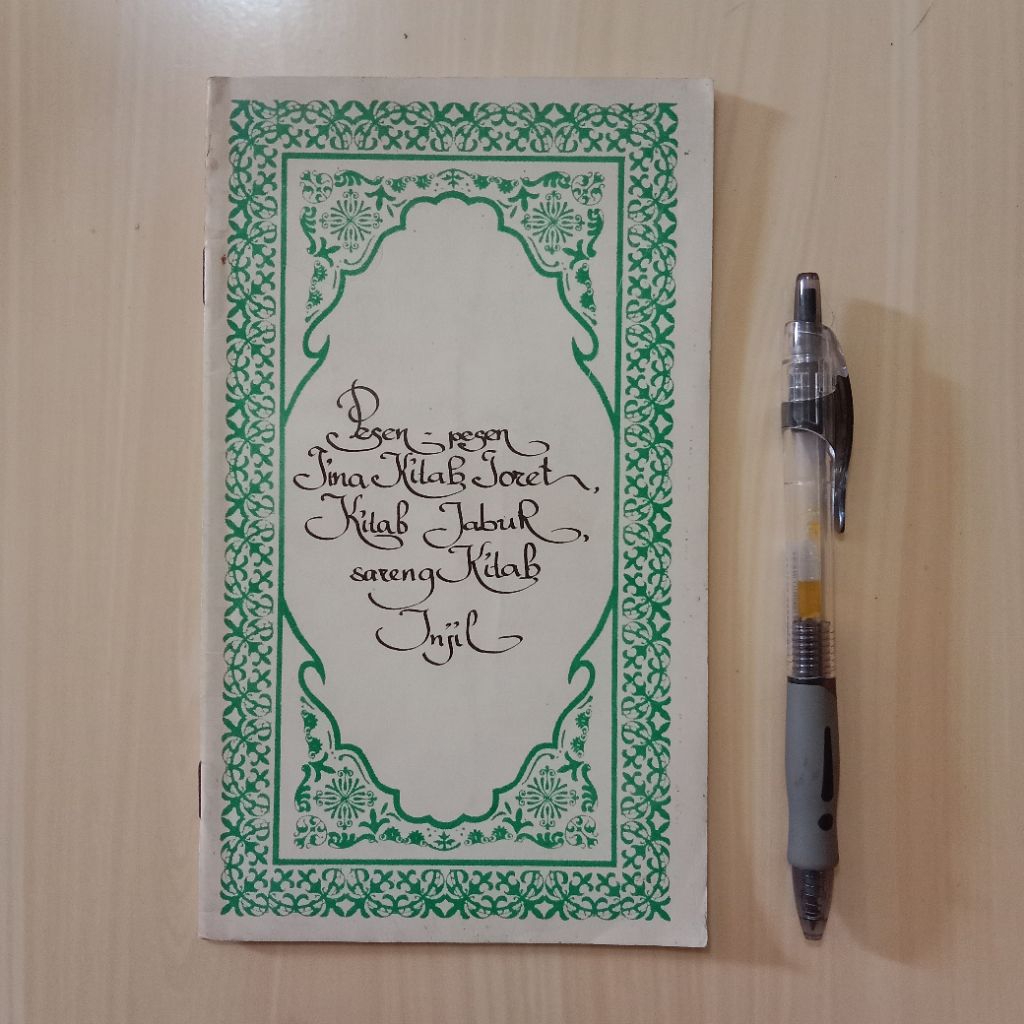 Pesen-pesen
Tina Kitab Toret,
Kitab Jabur,
sareng Kitab
Injil